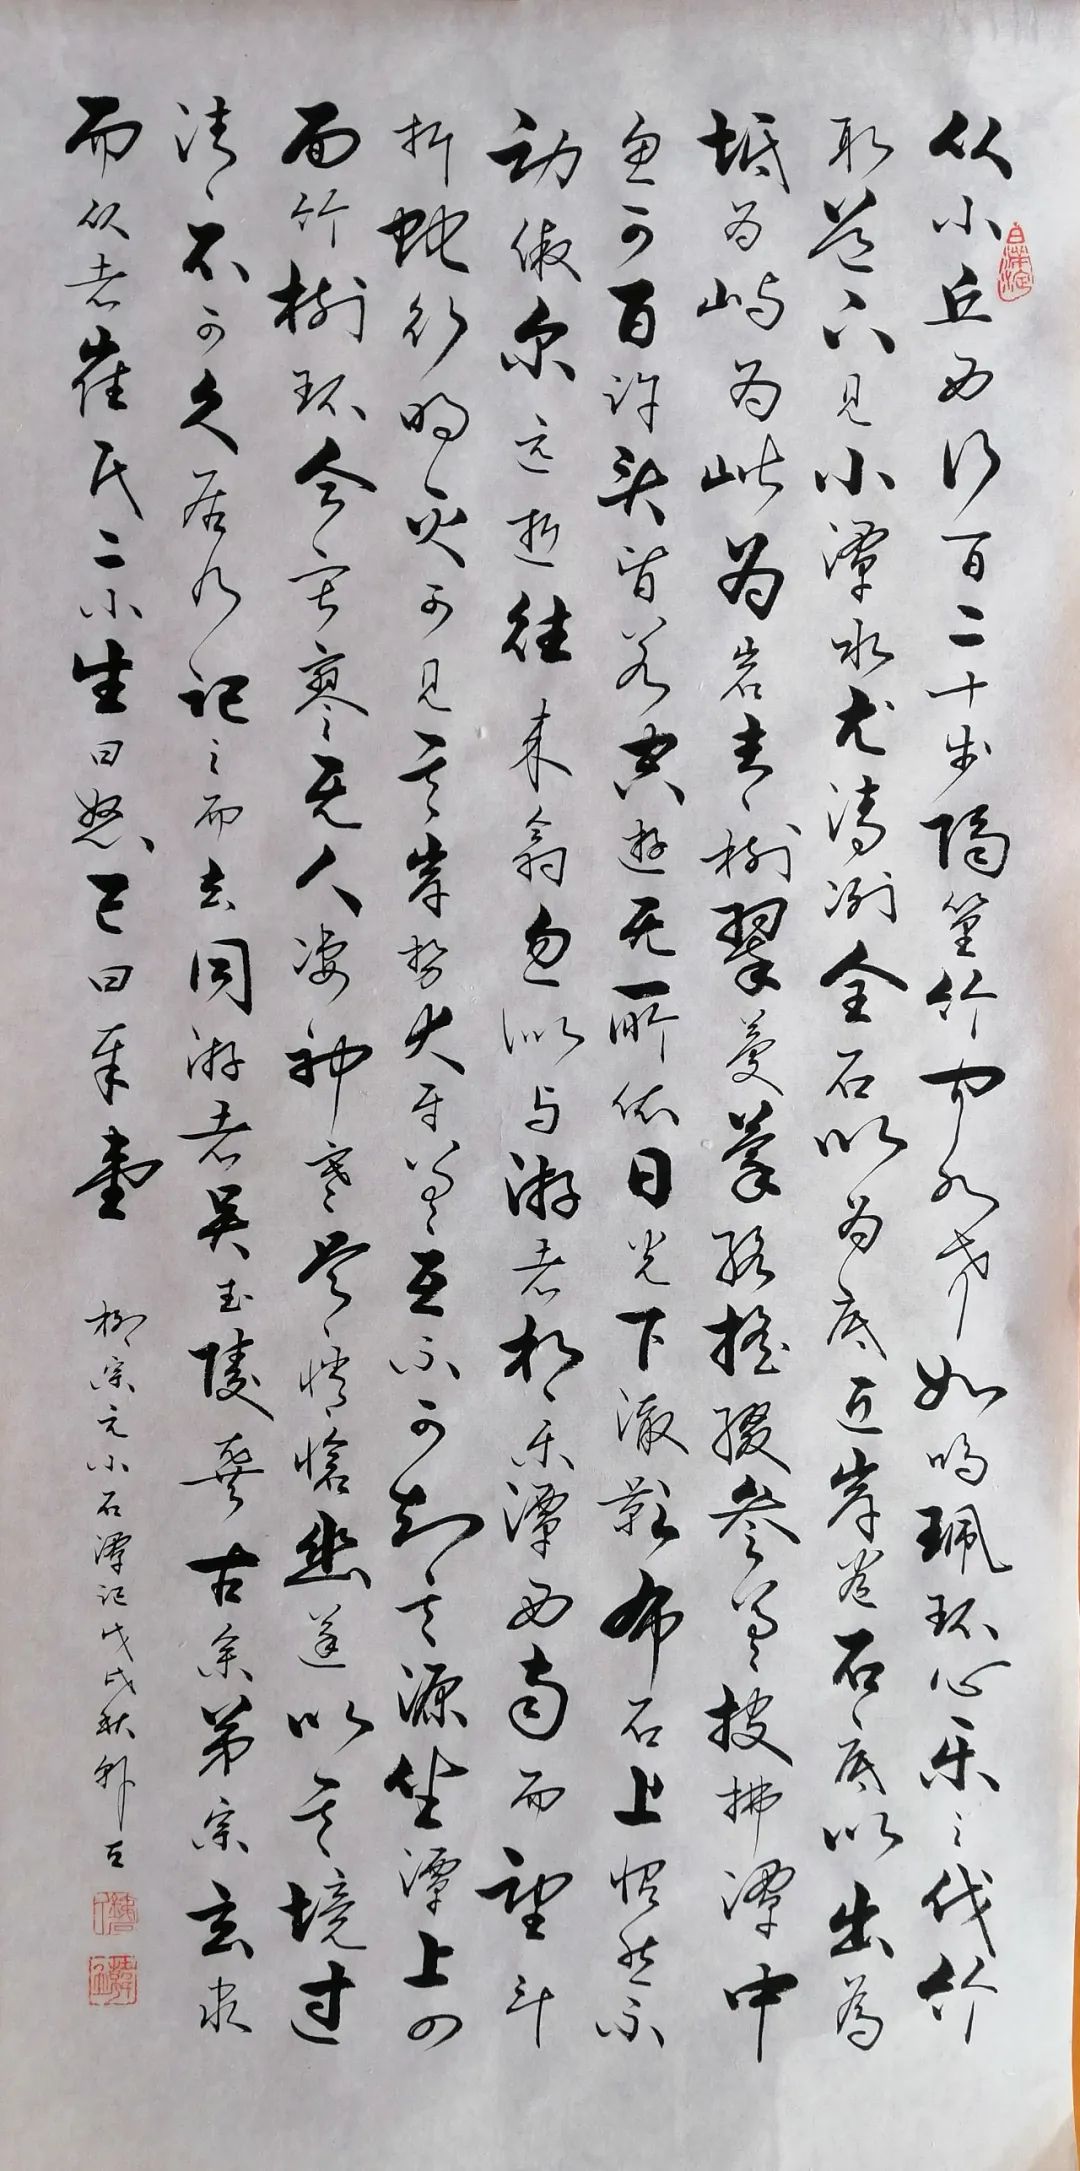 从小丘西行百二十步隔篁竹闻水声如鸣珮环心乐之伐竹
取道下见小潭水尤清冽全石以为底近岸卷石底以出为
坻为屿为嵁为岩青々树翠蔓蒙络摇缀参差披拂潭中
鱼可百许头皆若空游无所依日光下澈影布石上怡然不
动俶尔远逝往来翕忽似与游者相乐潭西南而望斗
折蛇行明灭可见其岸势大牙差互不可知其源坐潭上四
面竹树环合寂寥无人凄神寒骨悄怆幽邃以其境过
清不可久居乃记之而去同游者吴武陵龚古余弟宗玄隶
而从者崔氏二小生曰恕己曰奉壹
柳宗元小石潭记戊戌秋